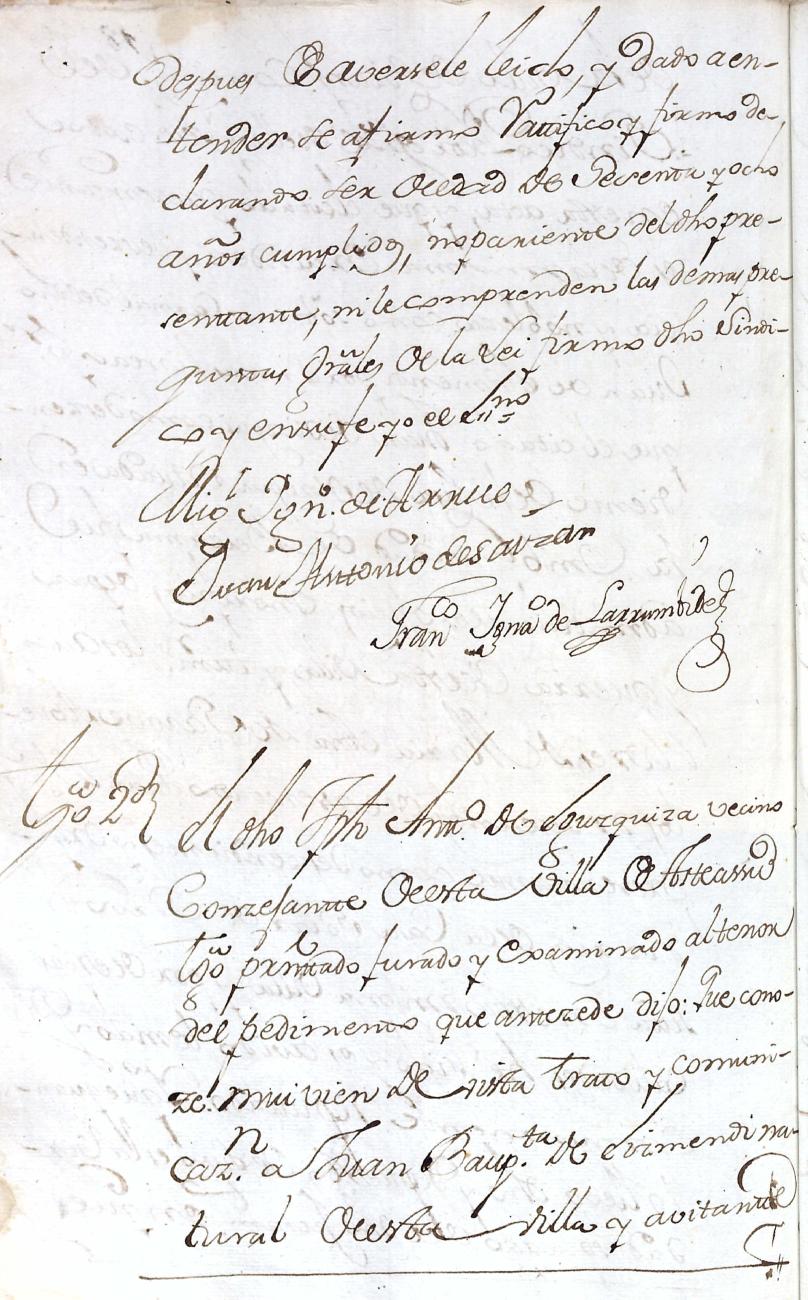 despues de aversele leido, y dado a en-
tender se afirmo Ratifico y firmo de-
clarando ser de edad de Sesenta y ocho
años cumplidos, no pariente del dho pre-
sentante, ni le comprenden las demas pre-
guntas Grales de la Lei firmo dho Sindi-
co y en su fe yo el Sno
Migl Ygno. de Arrue
Juan Antonio de Sarazar
Franco Ygnao de Larrumbide
tgo 2o
el dho Jph Antto. de Eguzquiza vecino
Conzejante de esta Villa de Asteassu
tgo prnttado jurado y examinado al tenor
del pedimento que antezede dijo: Que cono-
ze mui vien de vista trato y comuni-
cazn. a Juan Baupta. de Erimendi na-
tural de esta villa y avitante